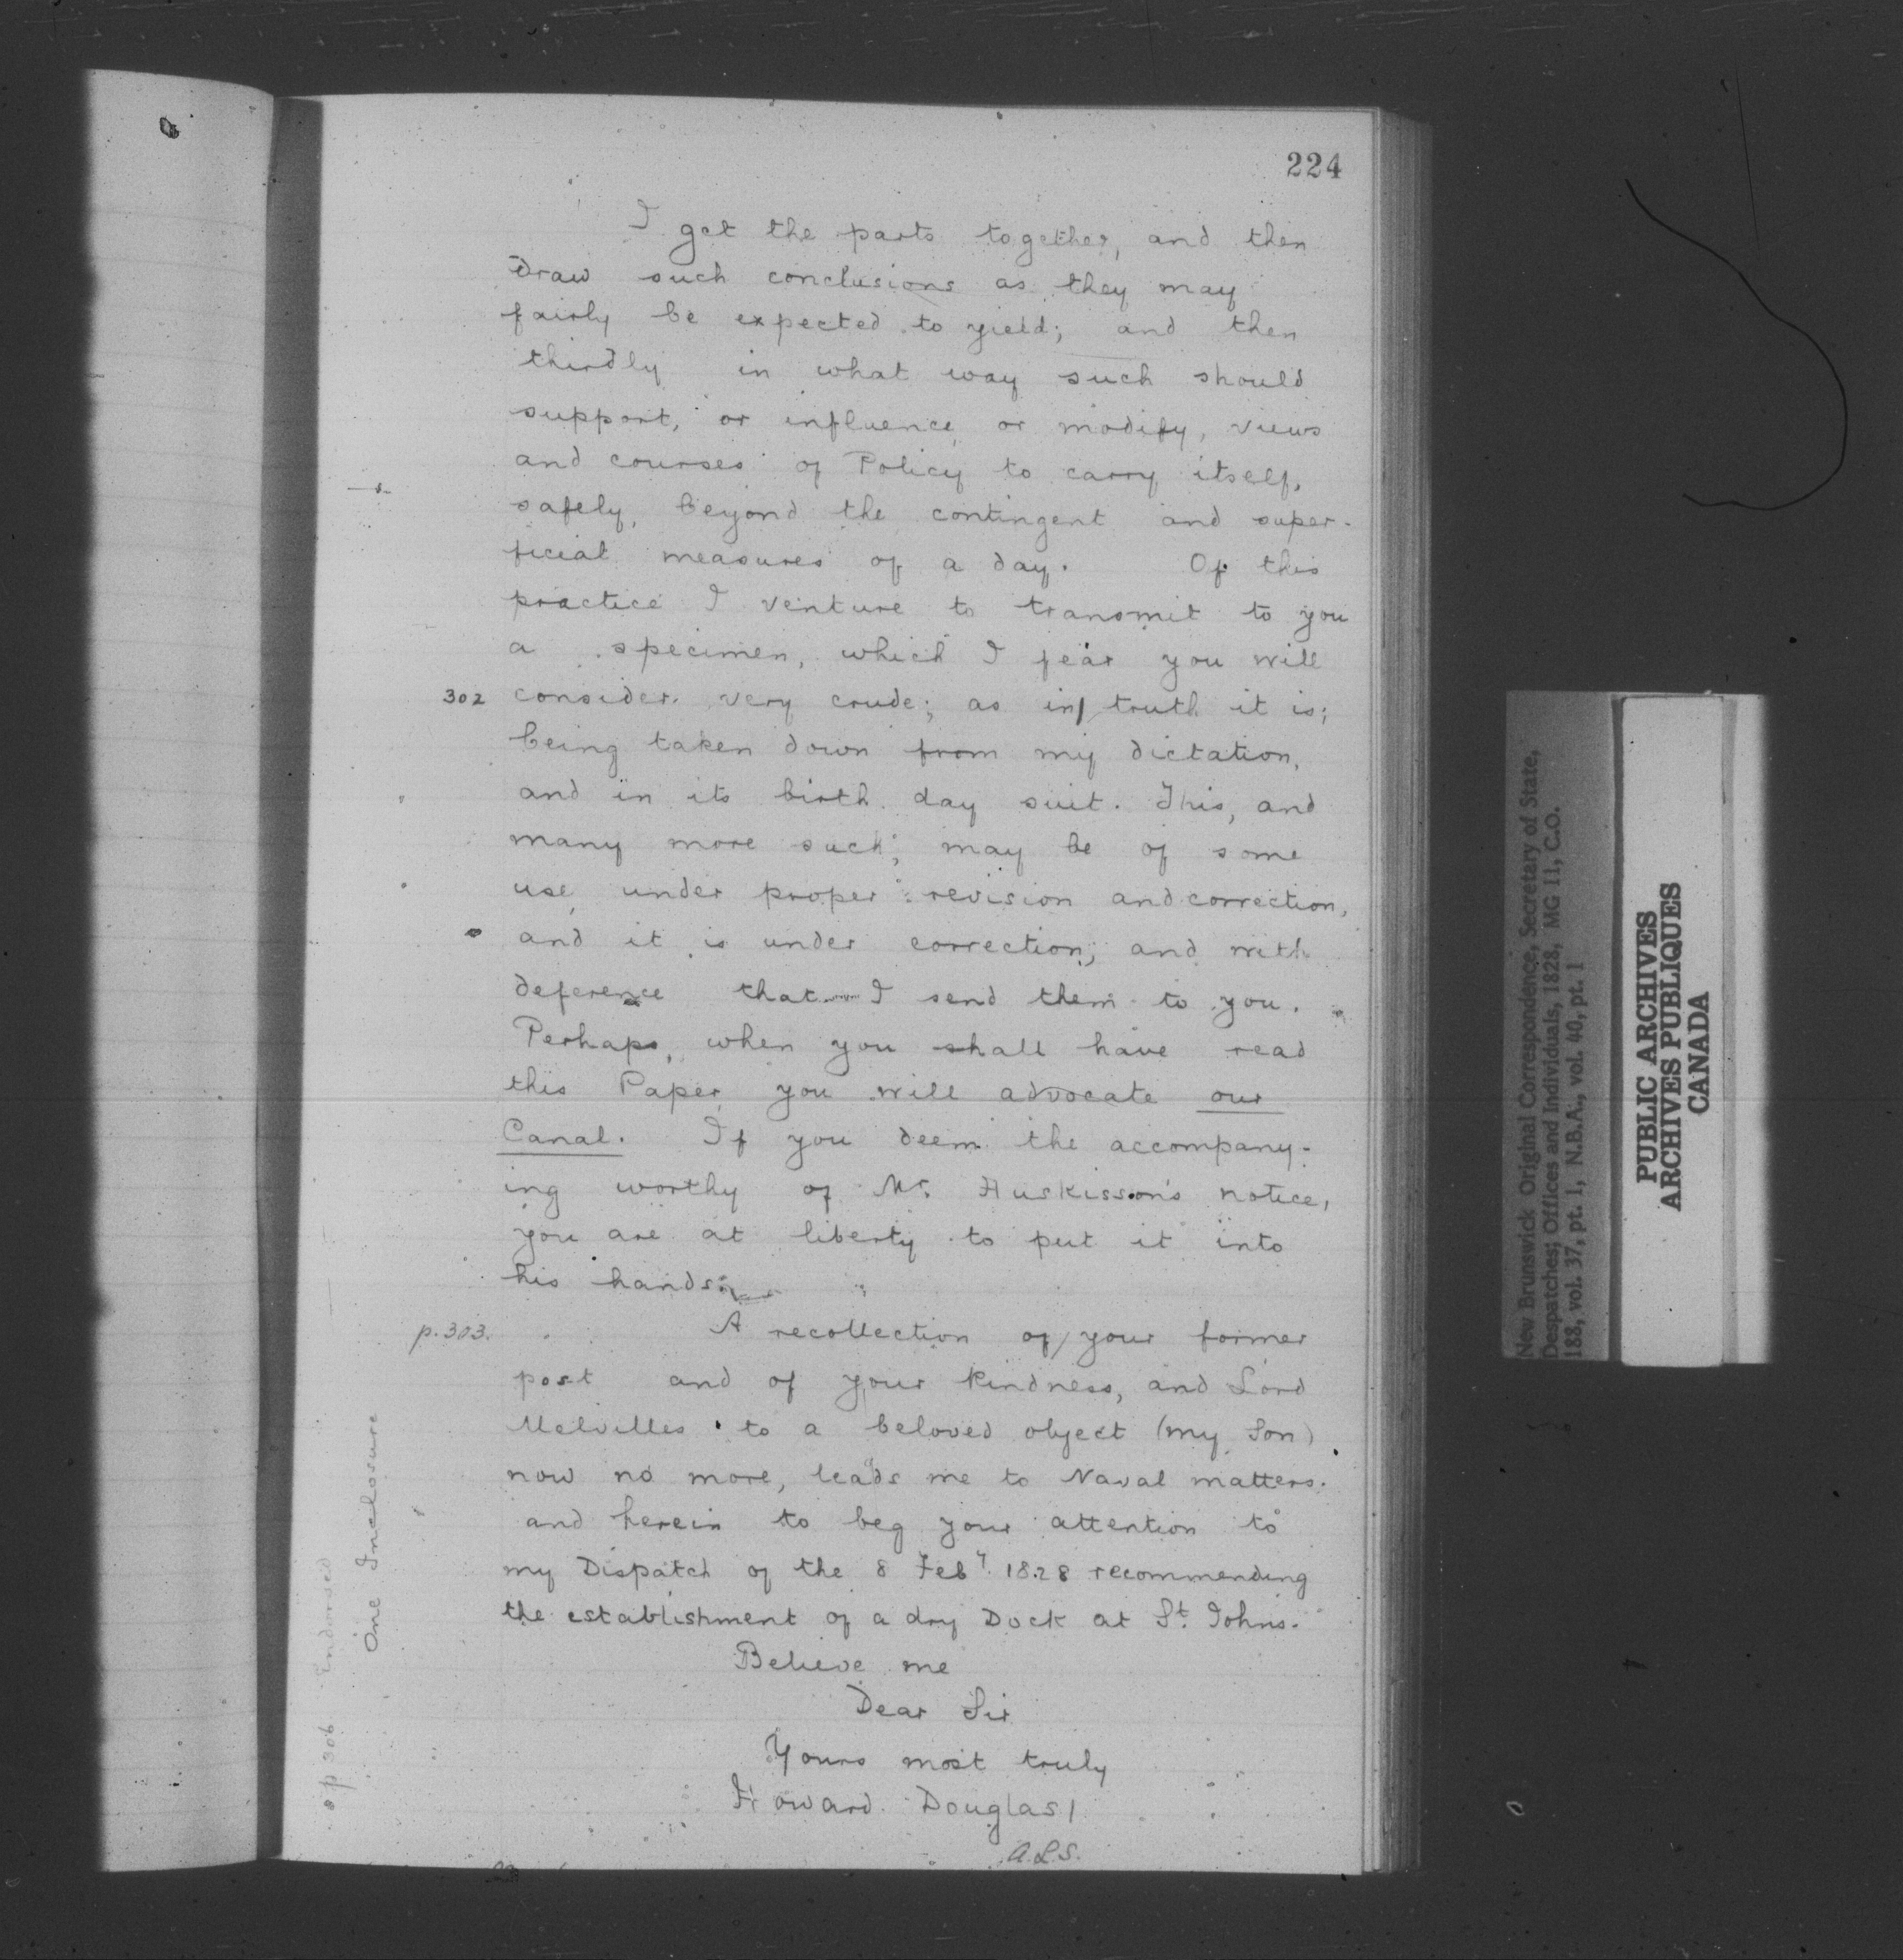 224
I get the parts together, and then
draw such conclusions as they may
fairly be expected to yield; and then
thirdly in what way such should
support, or influence or modify, views
and courses of Policy to carry itself,
safely, beyond the contingent and super-
ficial measures of a day. Of this
practice I venture to transmit to you
a specimen, which I fear you will
302 consider very crude; as in/truth it is;
being taken down from my dictation,
and in its birth day suit. This, and
many more such, may be of some
use, under proper revision and correction,
and it is under correction, and with
deference that I send them to you.
Perhaps, when you shall have read
this Paper you will advocate our
Canal. If you deem the accompany-
ing worthy of Mr. Huskisson's notice,
you are at liberty to put it into
his hands.
p. 303. A recollection of/your former
post and of your kindness, and Lord
Melvilles to a beloved object (my Son)
now no more, leads me to Naval matters.
and herein to beg your attention to
my Dispatch of the 8 Feby. 1828 recommending
the establishment of a dry Dock at St. Johns.
Believe me
Dear Sir
Yours most truly
Howard Douglas/
A.L.S.
p 306 Endorsed
One Inclosure
New Brunswick Original Correspondence, Secretary of State,
Despatches; Offices and Individuals, 1828, MG 11, C.O.
188, vol. 37, pt. 1, N.B.A., vol. 40, pt. 1
PUBLIC ARCHIVES
ARCHIVES PUBLIQUES
CANADA